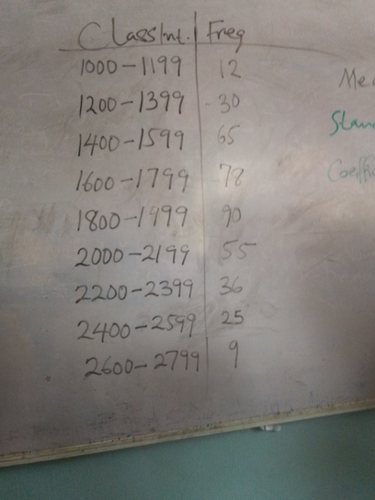 Class Int. Freq
1000-1199 12
1200-1399 30
1400-1599 65
1600-1799 78
1800-1999 90
2000-2199 55
2200-2399 36
2400-2599 25
2600-2799 9